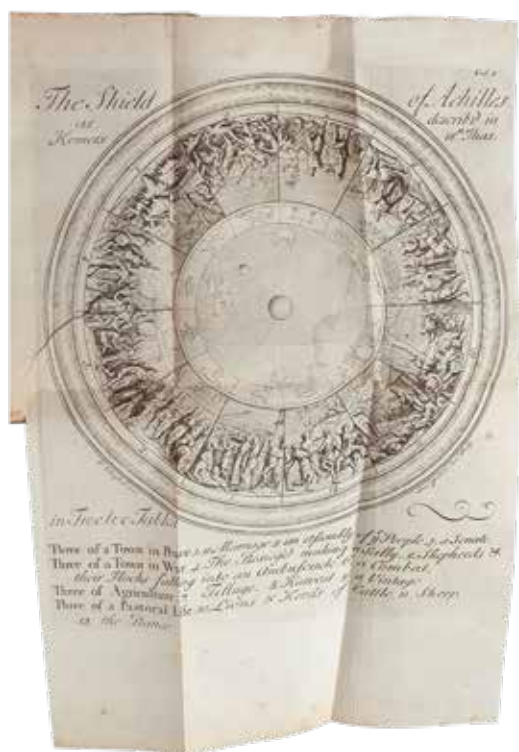 Vol. 5
The Shield of Achilles
as describ'd in
Homers Iliad.
in Twelve Tables
Three of a Town in Peace 1. a Marriage 2. an Assembly of yᵉ People 3. a Senate
Three of a Town in War 4. The Besieg'd making a Sally. 5. Shepherds &
their Flocks falling into an Ambuscade 6. a Combat.
Three of Agriculture 7. Tillage. 8. Harvest 9. a Vintage
Three of a Pastoral Life 10. Lions & Herds of Cattle. 11. Sheep.
12. the Dance